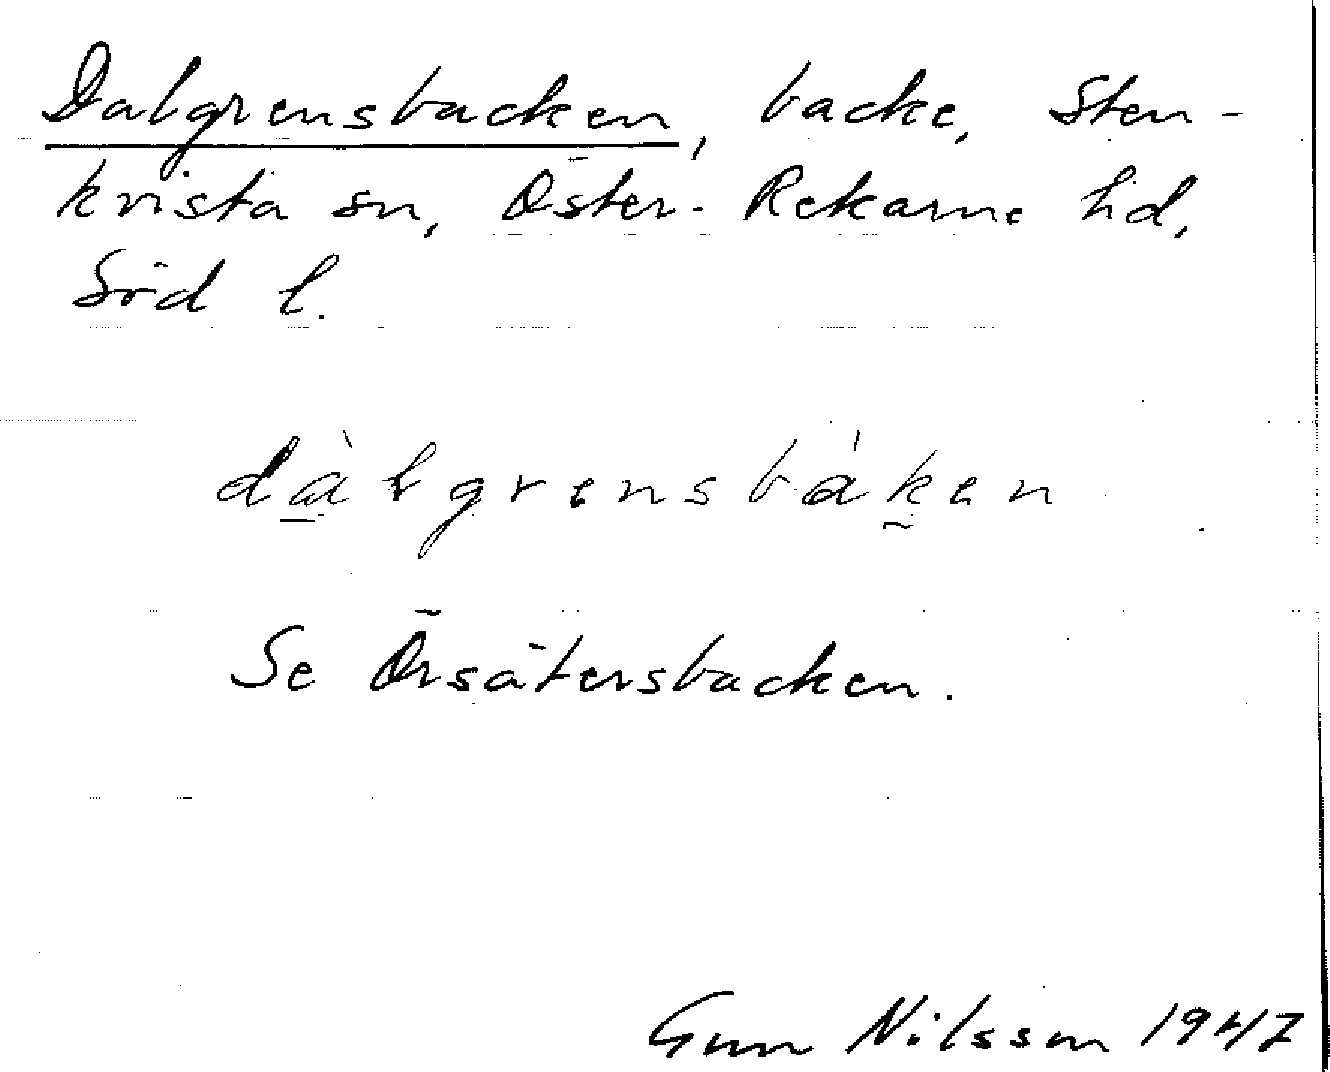 Dalgrensbacken, backe, Sten-
kvista sn, Öster-Rekarne hd,
Söd l.
dàlgrensbàken
Se Örsätersbacken.
Gun Nilsson 1947